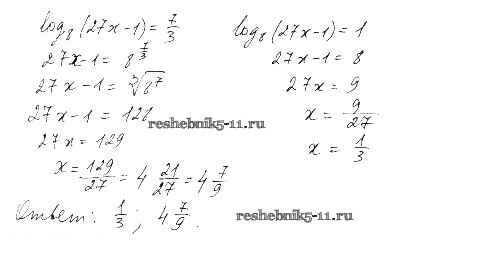 log₈(27x-1) = 7/3
27x-1 = 8^(7/3)
27x-1 = ∛(8⁷)
27x-1 = 128
27x = 129
x = 129/27 = 4 21/27 = 4 7/9
log₈(27x-1) = 1
27x-1 = 8
27x = 9
x = 9/27
x = 1/3
reshebnik5-11.ru
Ответ: 1/3; 4 7/9.
reshebnik5-11.ru